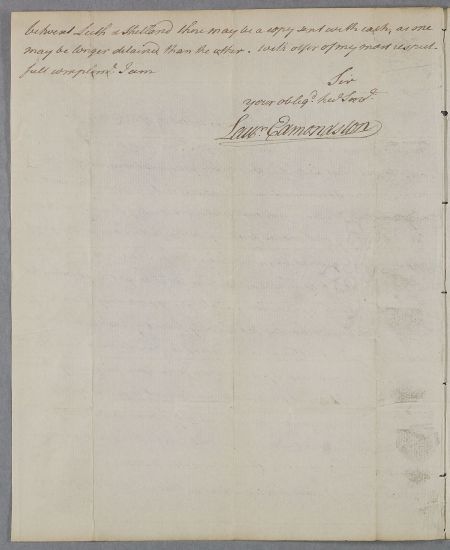 betwixt Leith & Shetland there may be a copy sent with each, as one
may be longer detained than the other. with offer of my most respect-
full complimt. I am
Sir
your oblig'd. hu Servt.
Laur Edmondston